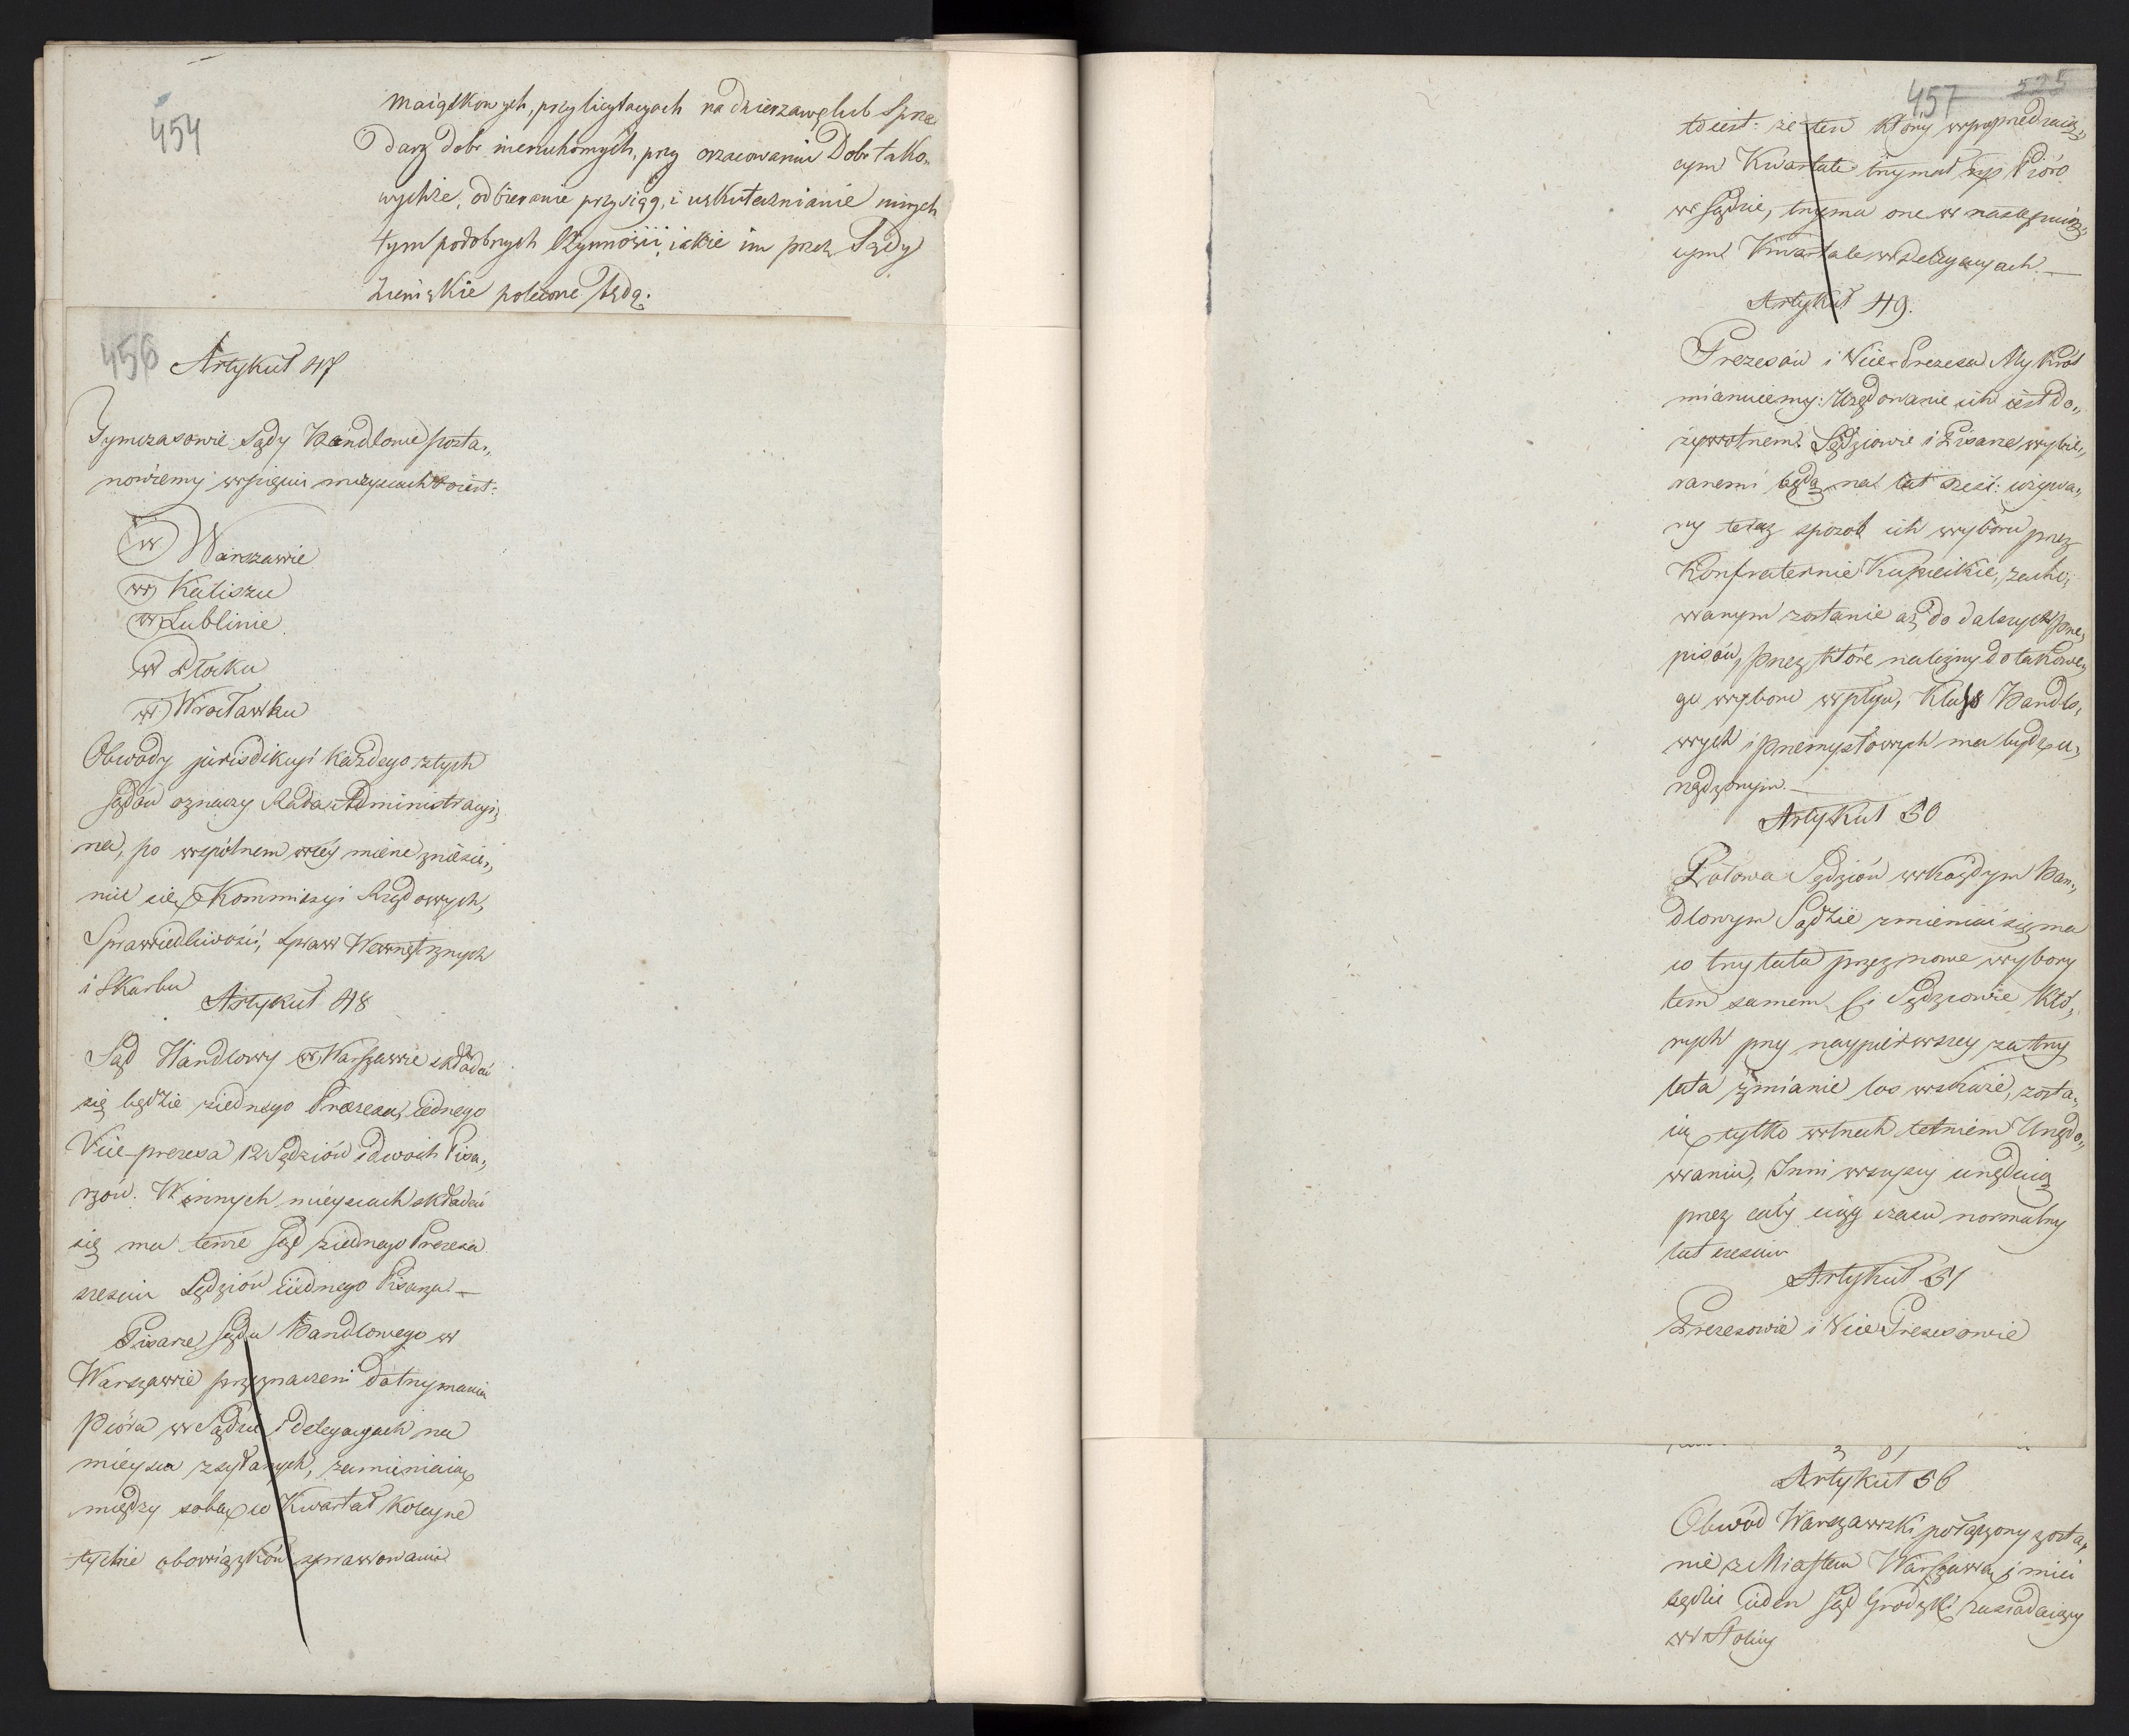 454
maiątkowych, przy licytacyach na dzierzawę lub sprze
darz dobr nieruchomych, przy oszacowaniu Dobr tako„
wychże, odbieranie przysiąg, i uskutecznianie innych
tym podobnych Czynności, iakie im przez Sądy
Ziemskie polecone będą.
456
Artykuł 47
Tymczasowie Sądy Handlowe posta„
nowiemy w pięciu mieyscach to iest:
w Warszawie
w Kaliszu
w Lublinie
w Płocku
w Wrocławku
Obwody jurisdikcyi każdego z tych
sądów oznaczy Rada Administracyi„
na, po wspólnem w tey mierze zniesie„
niu się Kommissyi Rządowych,
Sprawiedliwości, spraw Wewnętrznych
i Skarbu
Artykuł 48
Sąd Handlowy w Warszawie składać
się będzie z iednego Prezesa, iednego
Vice-prezesa 12 Sędziów i dwoch Pisa„
rzów. W innych mieyscach składać
się ma tenże sąd z iednego Prezesa
sześciu Sędziów i iednego Pisarza. —
Pisarze Sądu Handlowego w
Warszawie przeznaczeni do trzymania
Pióra w Sądzie i delegacyach na
mieysca zsyłanych, zamieniaią
między sobą co Kwartał koleyne
tychże obowiązków sprawowanie
457 525
to iest: że ten który w poprzedzaią„
cym Kwartale trzymał Pióro
w sądzie, trzyma one w następuią„
cym Kwartale w delegacyach. —
Artykuł 49.
Prezesów i Vice-Prezesa My Król
mianuiemy: Urzędowanie ich iest do„
żywotniem. Sędziowie i Pisarze wybie„
ranemi będą na lat sześć: używa„
ny teraz sposob ich wyboru przez
Konfraternie Kupieckie, zacho„
wanym zostanie aż do dalszych prze„
pisów, przez które należny do takowe„
go wyboru wpływ, Klass Handlo„
wych i przemysłowych ma bydź u„
rządzonym. —
Artykuł 50
Połowa Sędziów w każdym Han„
dlowym Sądzie zmieniać się ma
co trzy lata przez nowe wybory
tem samem Ci Sędziowie któ„
rych przy naypierwszey za trzy
lata zmianie los wskaże, zosta„
ią tylko w trzech letniem Urzędo„
waniu, Inni wszyscy urzęduią
przez cały ciąg czasu normalny
lat sześciu
Artykuł 51
Prezesowie i Vice Prezesowie
Artykuł 56
Obwód Warszawski połączony zosta„
nie z Miastem Warszawą i mieć
będzie ieden sąd Grodzki zasiadaiący
w Stolicy